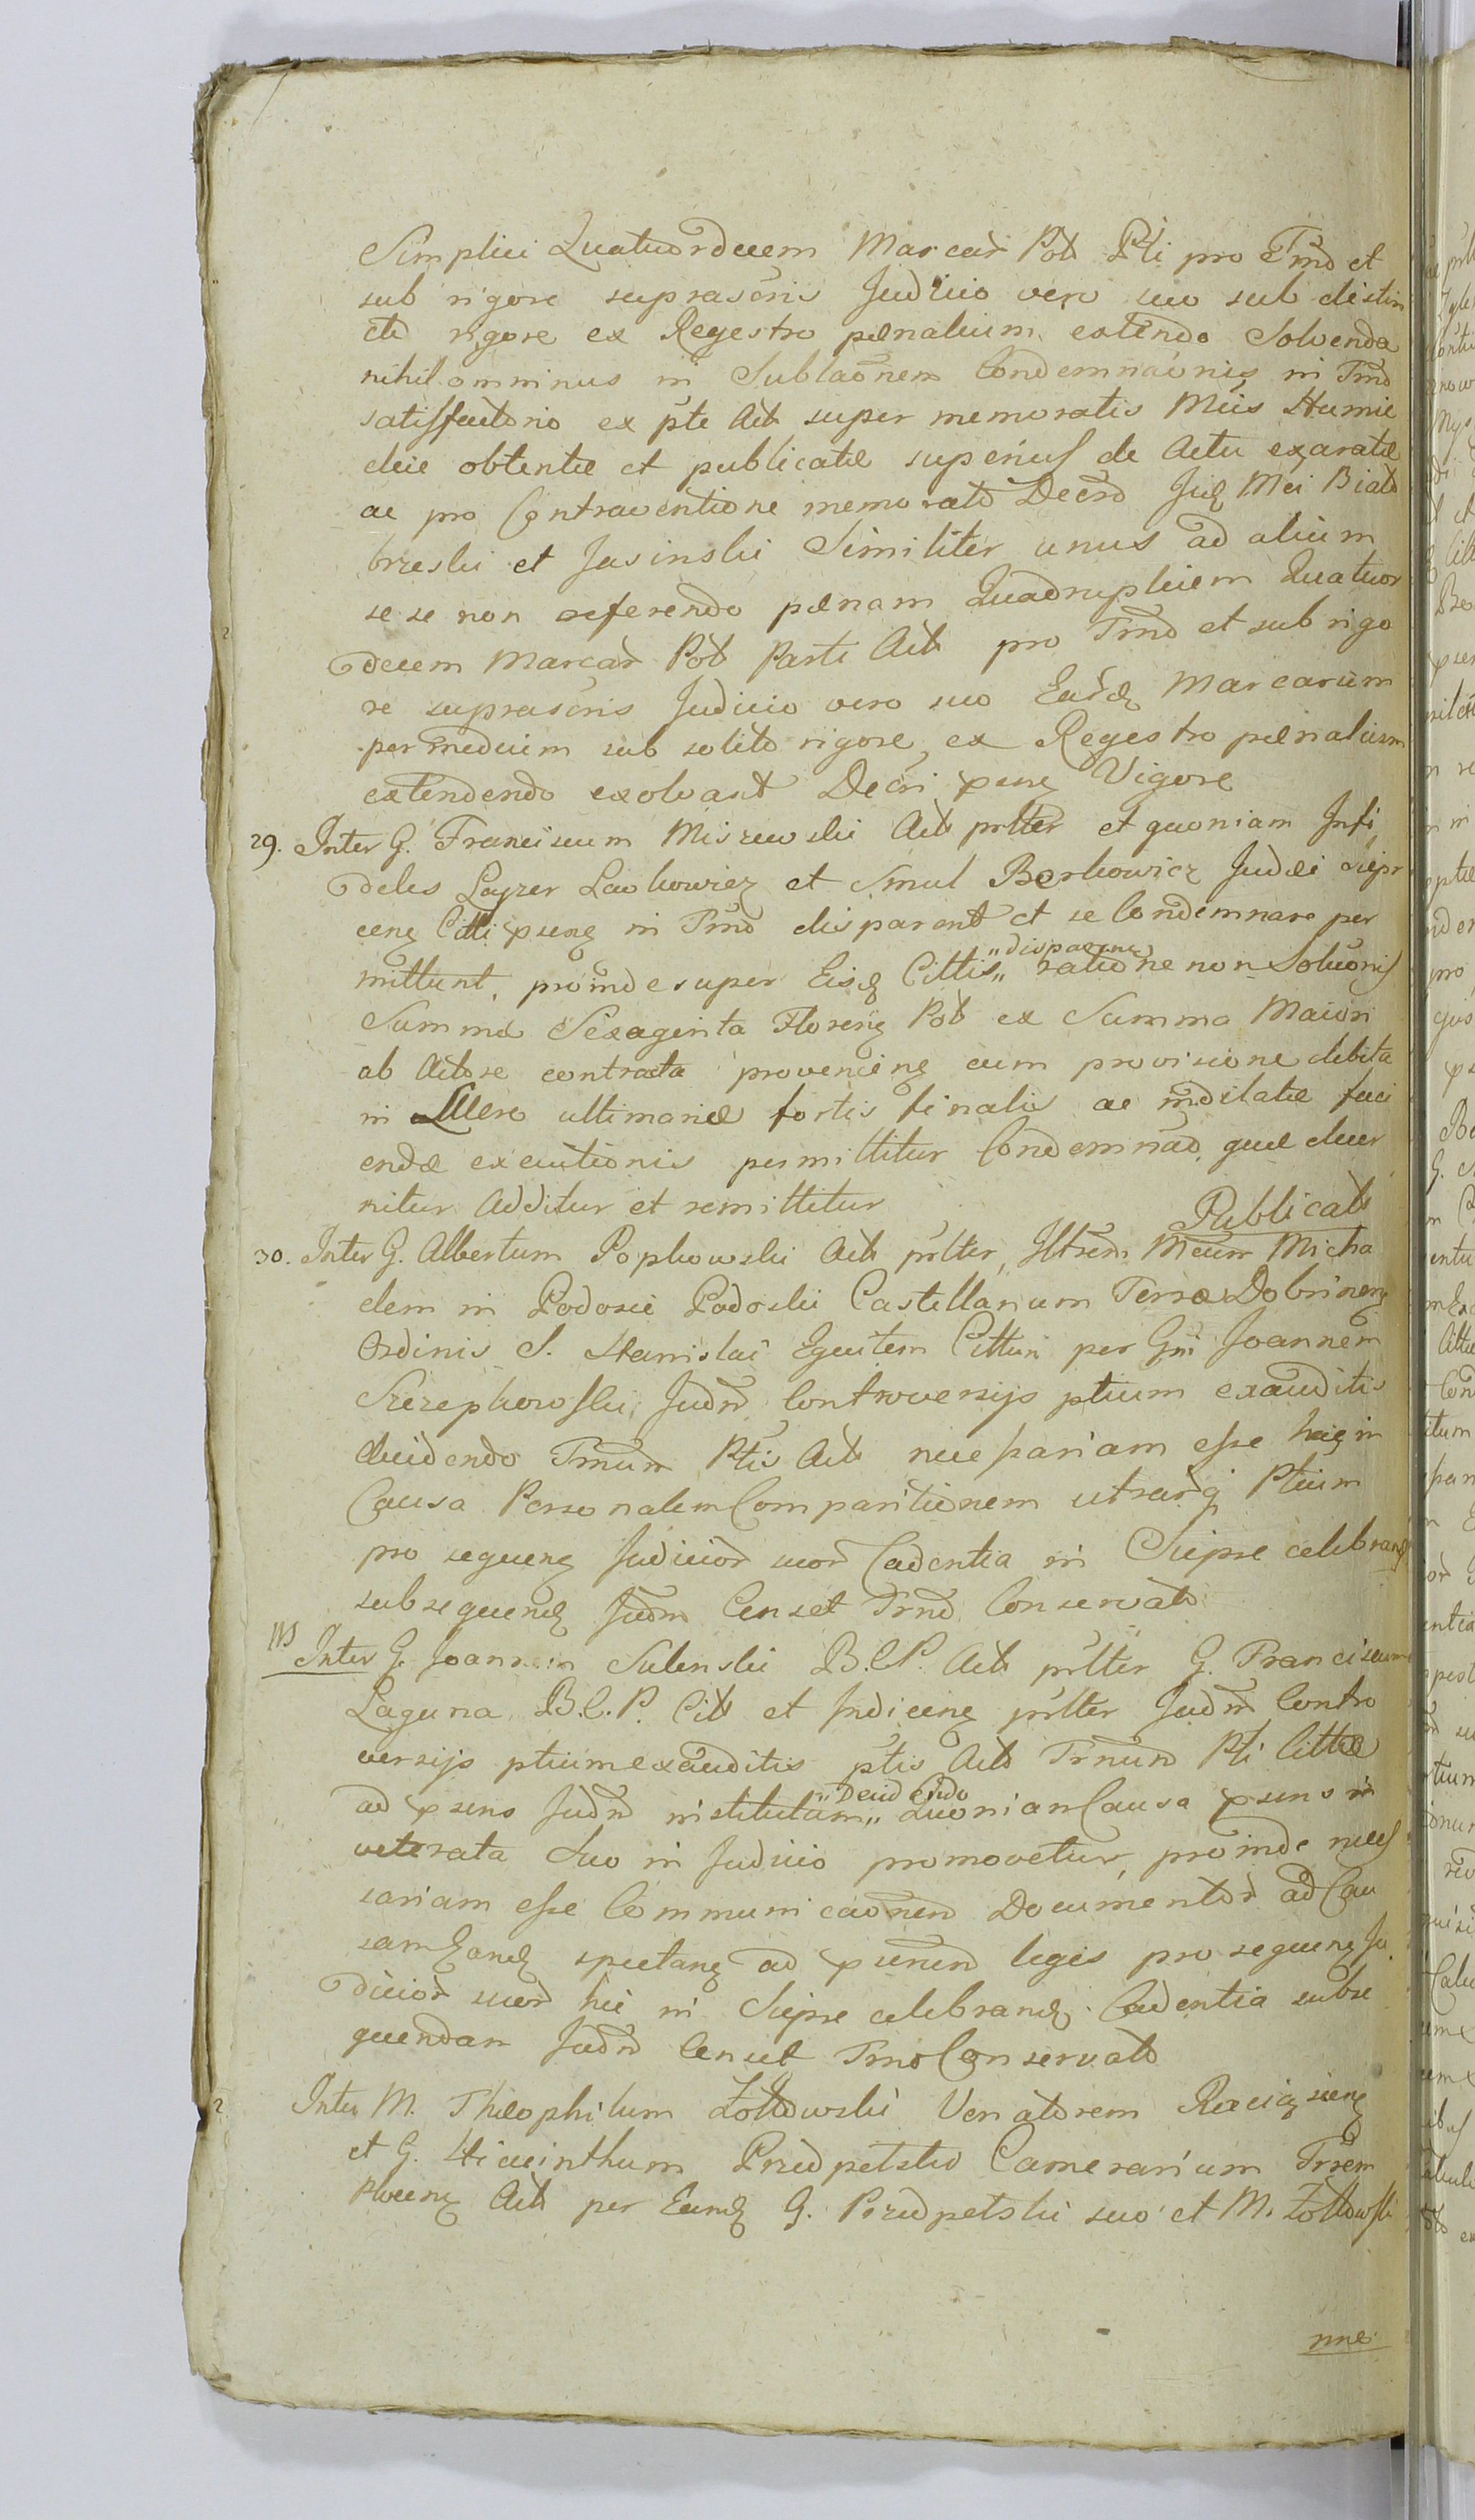 Simplici Quatuordecem Marcar Pol Pti pro Tmo et
sub rigore suprascris Judicio vero suo sub distin
cto rigore ex Regestro pænalium extendo Solvenda
nihilominus in Sublaōnem Condemnaōnis in Tmo
satisfactorio ex pte Act super memoratis Mcis Humie
ckie obtentæ et publicatæ superius de Actu exaratæ
ac pro Contraventione memorato Decro Juq Mci Biało
brzeski et Jasinski Similiter unus ad alium
se se non referendo pænam Quadruplicem Quatuor
decem Marcar Pol Parti Act pro Tmo et sub rigo
re suprascris Judicio vero suo Earūq Marcarum
per medium sub solito rigore, ex Regestro pænalium
extendendo exolvant Decri psenę Vigore
29. Inter G. Franciscum Miszewski Act prlter et quoniam Infi
deles Layzer Lewkowicz et Smul Berkowicz Judæi Siepr
cenę Citti psenę in Tmo disparent et se Condemnare per
mittunt, proinde super Eisq Cittis „disparenę„ ratione non Soluōnis
Summæ Sexaginta Florenę Pol ex Summa Maiori
ab Actore contracta provenienę cum provisione debita
in Lucro ultimariæ fortis finalis ac indilatæ faci
endæ executionis permittitur Condemnao, quæ decer
nitur Additur et remittitur
Publicat
30. Inter G. Albertum Popkowski Act prlter, Illtrem Mcum Micha
elem in Podosie Podoski Castellanum Terræ Dobrinenę
Ordinis S. Stanislai Equitem Cittum per Gm Joannem
Szczepkowski Judm Controversijs ptium exauditis
decidendo Tmum Ptis Act necessariam esse hacę in
Causa Personalem Comparitionem utrarq Ptium
pro sequenę Judicior suor Cadentia in Siepre celebranę
subsequenę Judm Censet Tmo Conservato
Inter G. Joannem Sulenski B.C.P. Act prlter G. Franciscum
Laguna B.C.P. Citt et Indicenę prlter Judm Contro
versijs ptium exauditis ptis Act Trmum Pti Cittæ
ad psens Judm institutum „Decidendo„ Quoniam Causa psens in
veterata Suo in Judicio promovetur, proinde neces
sariam esse Communicaōnem Documentor ad Cau
sam Eandę spectanę ad psenem legis pro sequenę Ju
dicior suor hic in Siepre celebranę Cadentia subse
quendam Judm Censet Tmo Conservato
Inter M. Theophilum Zółtowski Venatorem Raciązsienę
et G. Hiacinthum Przedpełski Camerarium Trrem
Plocenę Act per Eundę G. Przedpełski suo et M. Zółtowski
nne